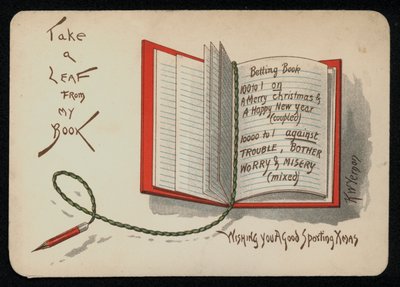 Take
a
LEAF
FROM
MY
BOOK
Betting Book
100 to 1 on
A Merry Christmas &
A Happy New Year
(coupled)
10000 to 1 against
TROUBLE, BOTHER
WORRY & MISERY
(mixed)
WISHING YOU A Good Sporting XMAS